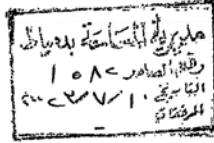 مديرية المساحة بدمياط
رقم الصادر ١٠٨٢
التاريخ ١٠/٧/٢٣
المرفقات -